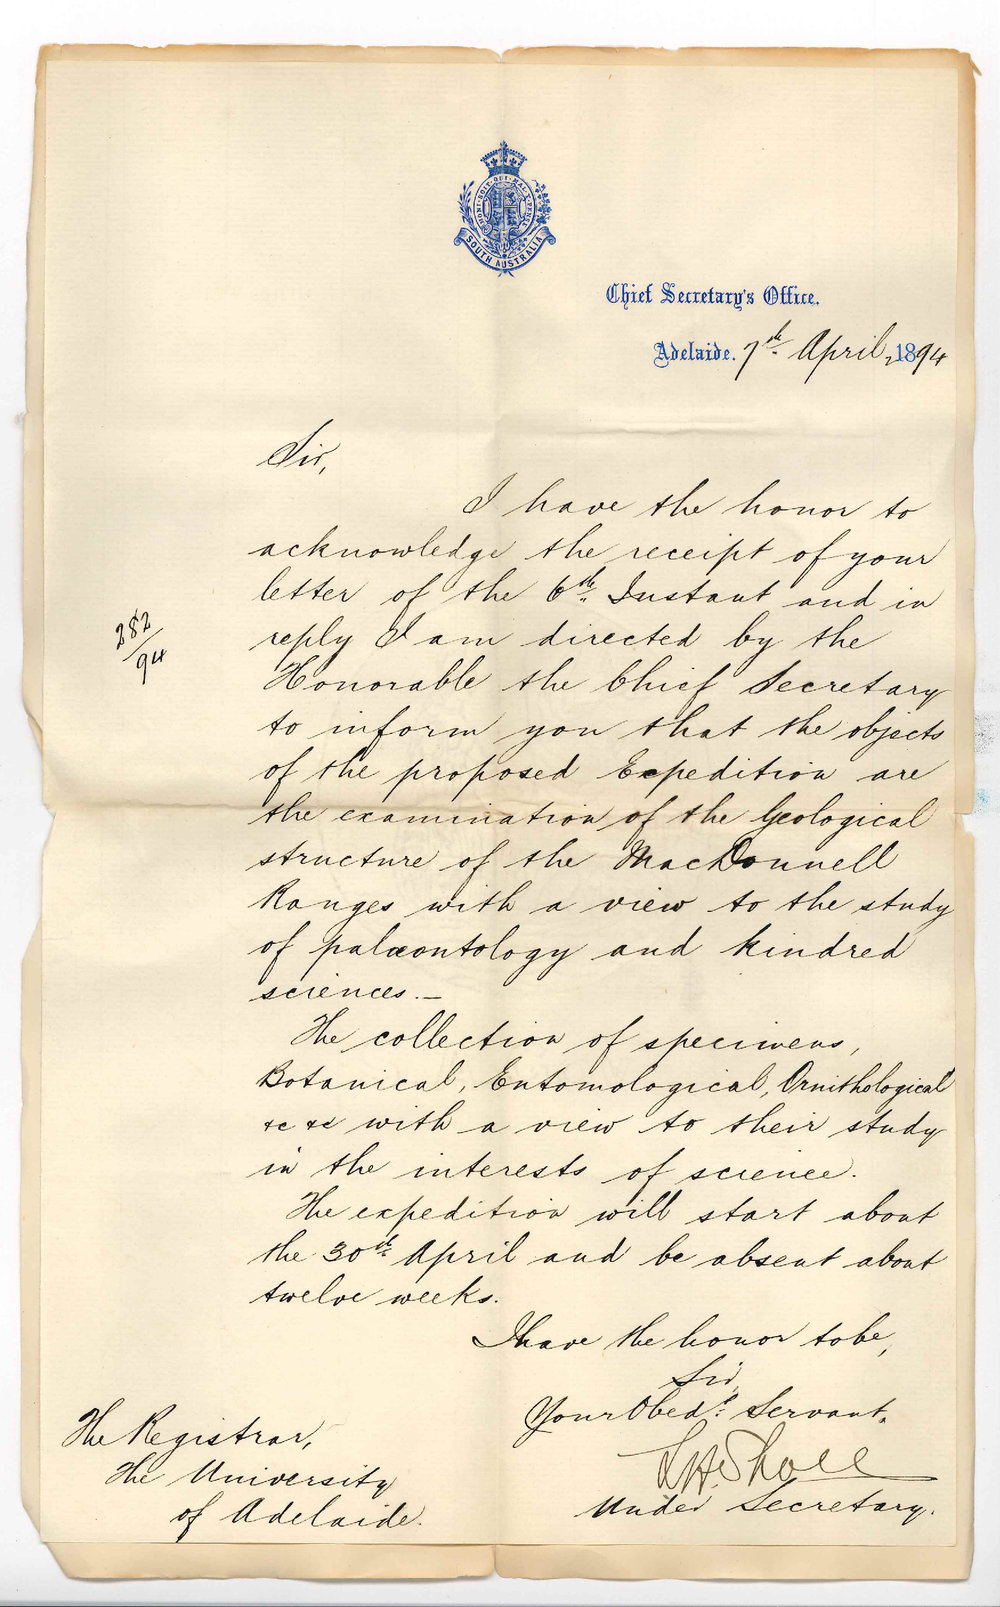 HONI·SOIT·QUI·MAL·Y·PENSE
SOUTH AUSTRALIA
Chief Secretary's Office.
Adelaide. 7th April, 1894
Sir,
I have the honor to
acknowledge the receipt of your
letter of the 6th Instant and in
reply I am directed by the
Honorable the Chief Secretary
to inform you that the objects
of the proposed Expedition are
the examination of the Geological
structure of the MacDonnell
Ranges with a view to the study
of palæontology and kindred
sciences.—
The collection of specimens,
Botanical, Entomological, Ornithological
&c &c with a view to their study
in the interests of science.
The expedition will start about
the 30th April and be absent about
twelve weeks.
I have the honor to be,
Sir,
Your Obedt Servant,
L H Sholl
Under Secretary.
282/94
The Registrar,
The University
of Adelaide.